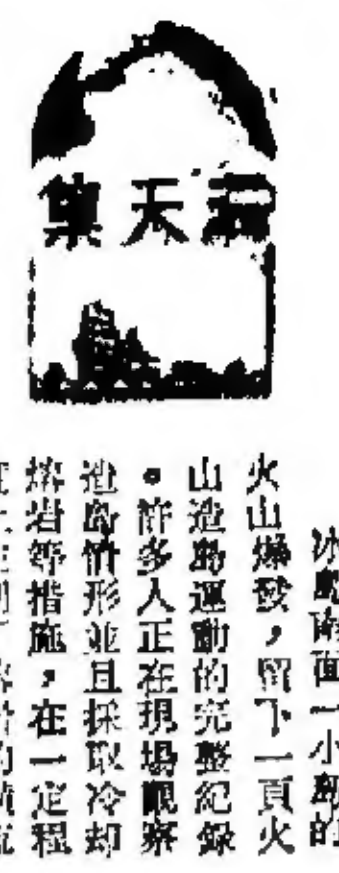 天集
冰島南面一小島的
火山爆發，留下一頁火
山造島運動的完整紀錄
。許多人正在現場觀察
造島情形並且採取冷却
熔岩等措施，在一定程